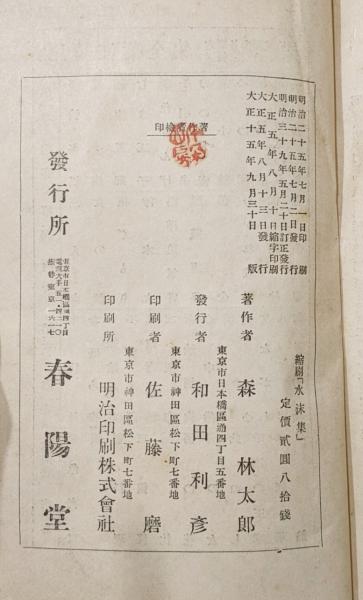 縮刷「水沫集」
定價貳圓八拾錢
明治二十五年七月一日印刷
明治二十五年七月二日發行
明治三十九年五月二十日訂正發行
大正五年八月十日縮字印刷
大正五年八月十三日發行
大正十五年九月三十日版
著作者檢印
著作者 森林太郎
東京市日本橋區通四丁目五番地
發行者 和田利彥
東京市神田區松下町七番地
印刷者 佐藤磨
東京市神田區松下町七番地
印刷所 明治印刷株式會社
發行所
東京市日本橋區通四丁目
春陽堂